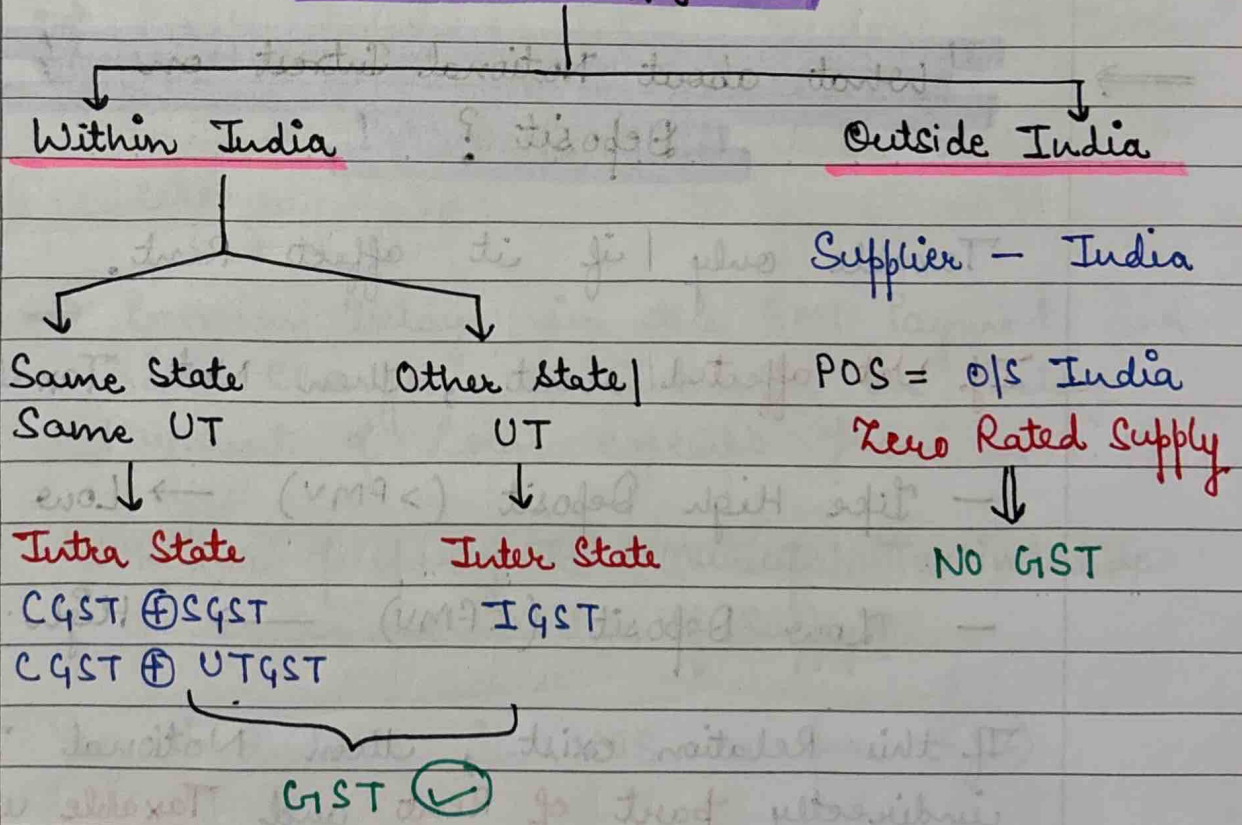 Within India
Outside India
Supplier - India
Same State
Other State/
POS = O/S India
Same UT
UT
Zero Rated Supply
Intra State
Inter State
NO GST
CGST ⊕ SGST
IGST
CGST ⊕ UTGST
GST ✓